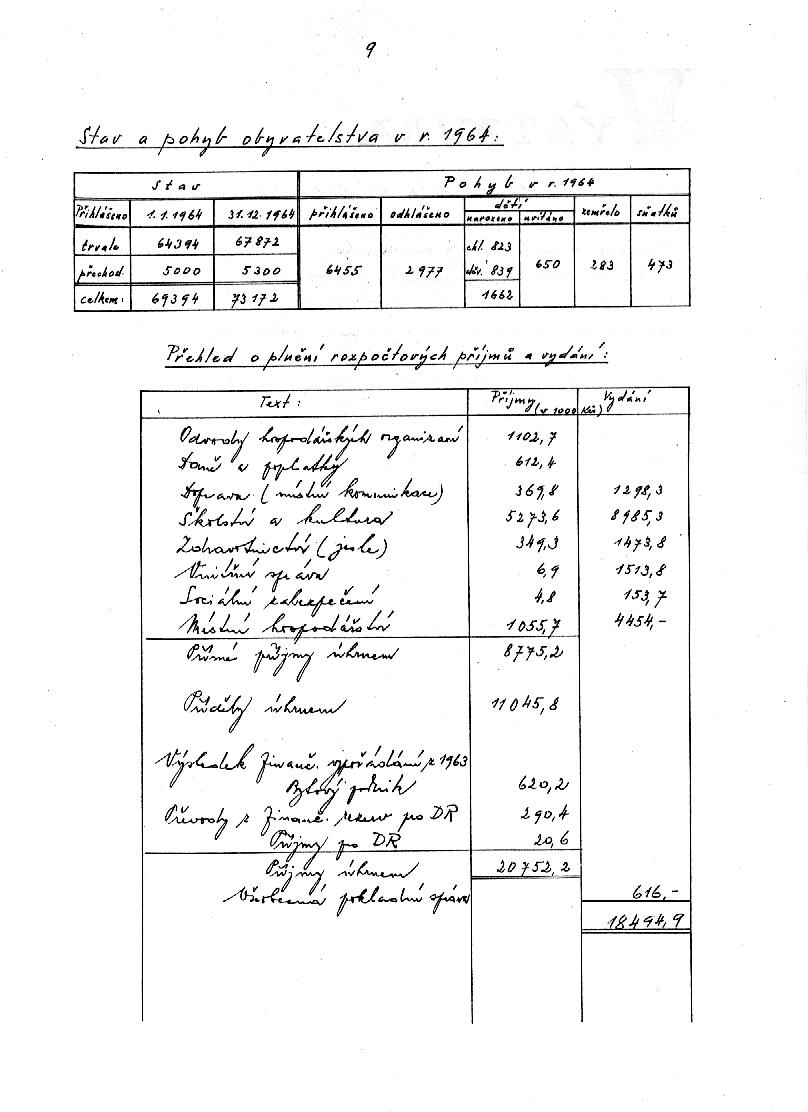 9
Stav a pohyb obyvatelstva v r. 1964:
Stav Pohyb v r. 1964
Přihlášeno 1.1.1964 31.12.1964 přihlášeno odhlášeno děti zemřelo sňatků
narozeno
trvale 64394 67872 chl. 823
přechod. 5000 5300 6455 2977 děv. 839 650 283 473
celkem: 69394 73172 1662
Přehled o plnění rozpočtových příjmů a vydání:
Text: Příjmy (v 1000 Kčs) Vydání
Odvody hospodářských organizací 1102,7
Daně a poplatky 612,4
Doprava (místní komunikace) 369,8 1298,3
Školství a kultura 5273,6 8985,3
Zdravotnictví (jesle) 349,3 1473,8
Vnitřní správa 6,9 1513,8
Sociální zabezpečení 4,8 153,7
Místní hospodářství 1055,7 4454,-
Přímé příjmy úhrnem 8775,2
Příděly úhrnem 11045,8
Výsledek finanč. vypořádání z 1963
Bytový podnik 620,2
Převody z finanč. rezerv pro DR 290,4
Příjmy pro DR 20,6
Příjmy úhrnem 20752,2
Všeobecná pokladní správa 616,-
18494,9